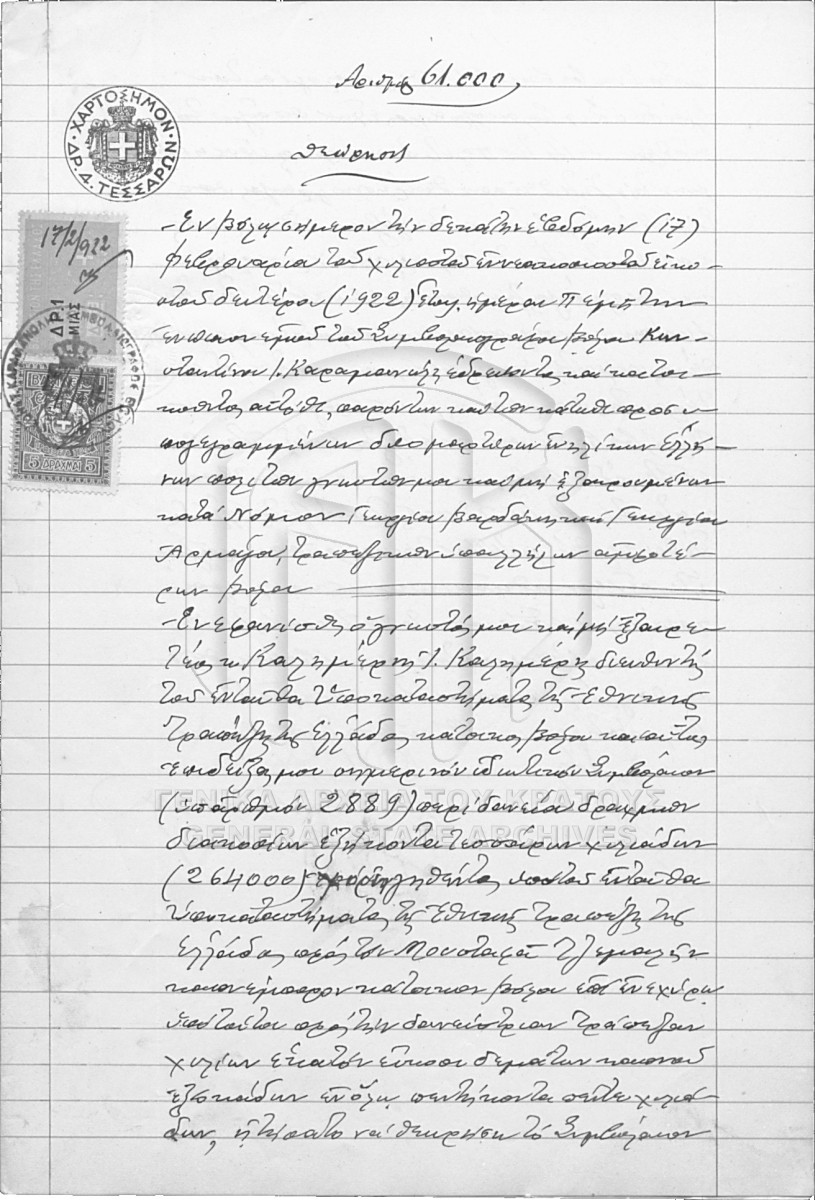 Αριθμός 61.000
ΧΑΡΤΟΣΗΜΟΝ
ΔΡ. 4. ΤΕΣΣΑΡΩΝ
Θεώρησις
17/2/922
ΔΡ. 1
ΜΙΑΣ
5 ΔΡΑΧΜΑΙ 5
Εν Βόλω σήμερον την δεκάτην εβδόμην (17)
Φεβρουαρίου του χιλιοστού εννεακοσιοστού εικο-
στού δευτέρου (1922) έτους ημέραν Πέμπτην
ενώπιον εμού του Συμβολαιογράφου Βόλου Κων-
σταντίνου Ι. Καραμανώλη εδρεύοντος και κατοι-
κούντος αυτόθι, παρόντων και των κάτωθι προσυ-
πογεγραμμένων δύο μαρτύρων ενηλίκων Ελλή-
νων πολιτών γνωστών μοι και μη εξαιρουμένων
κατά Νόμον Γεωργίου Βαρδάκη και Γεωργίου
τραπεζιτικών υπαλλήλων αμφοτέ-
ρων Βόλου
Ενεφανίσθη ο γνωστός μοι και μη εξαιρε-
τέος κ. Καλημέρης Ι. Καλημέρης διευθυντής
του ενταύθα Υποκαταστήματος της Εθνικής
Τραπέζης της Ελλάδος κάτοικος Βόλου και ούτος
επιδείξας μοι σημερινόν ιδιωτικόν Συμβόλαιον
(υπ' αριθμόν 2889) περί δανείου δραχμών
διακοσίων εξήκοντα τεσσάρων χιλιάδων
(264000) χορηγηθέντος υπό του ενταύθα
Υποκαταστήματος της Εθνικής Τραπέζης της
Ελλάδος προς τον Μουσταφά
καπνέμπορον κάτοικον Βόλου επί ενεχύρω
υπό τούτου προς την δανείστριαν Τράπεζαν
χιλίων εκατόν είκοσι δεμάτων καπνού
εξ οκάδων εν όλω πεντήκοντα πέντε χιλιά-
δων, ητήσατο να θεωρήση το Συμβόλαιον
ΓΕΝΙΚΑ ΑΡΧΕΙΑ ΤΟΥ ΚΡΑΤΟΥΣ
GENERAL STATE ARCHIVES